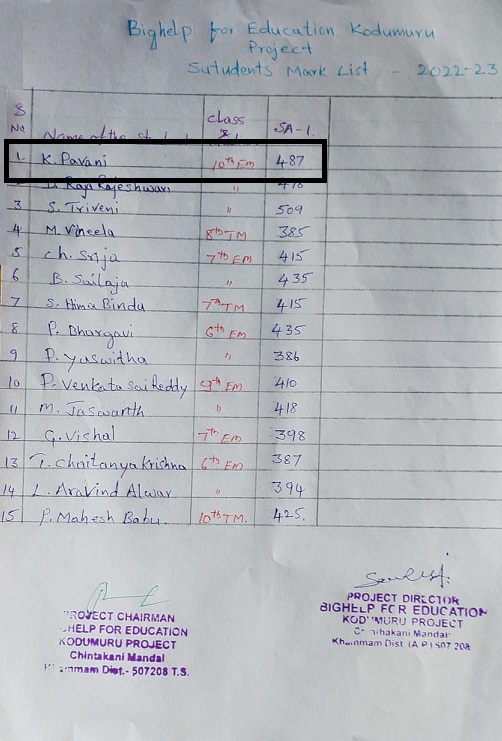 Bighelp for Education Kodumuru
Project
Sutudents Mark List - 2022-23
S No Name of the class SA-1.
1. K. Pavani 10th EM 487
Raja Rajeshwari "
3 S. Triveni " 509
4 M. Vineela 8th TM 385
5 Ch. Srija 7th EM 415
6 B. Sailaja " 435
7 S. Hima Bindu 7th TM 415
8 P. Bhargavi 6th EM 435
9 P. Yaswitha " 386
10 P. Venkata Sai Reddy 9th EM 410
11 M. Jaswanth " 418
12 G. Vishal 7th EM 398
13 T. Chaitanya Krishna 6th EM 387
14 L. Aravind Alwar " 394
15 P. Mahesh Babu. 10th TM. 425.
PROJECT CHAIRMAN
GHELP FOR EDUCATION
KODUMURU PROJECT
Chintakani Mandal
Dist.- 507208 T.S.
PROJECT DIRECTOR
BIGHELP FOR EDUCATION
KODUMURU PROJECT
Mandal
Khammam Dist (A P) 507 208